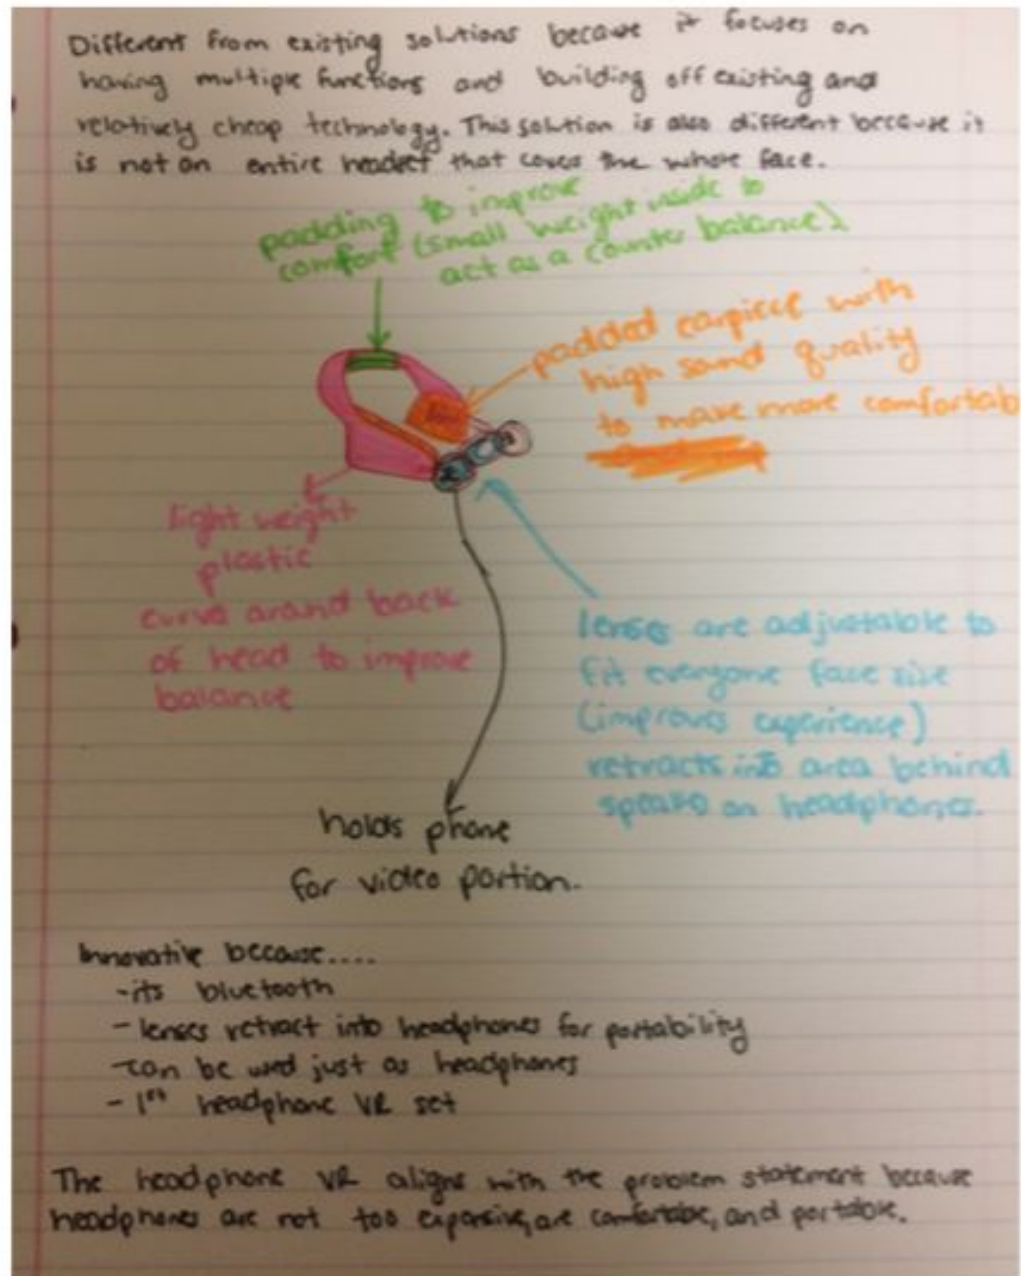 Different from existing solutions because it focuses on
having multiple functions and building off existing and
relatively cheap technology. This solution is also different because it
is not an entire headset that covers the whole face.
padding to improve
comfort (small weight inside to
act as a counter balance)
padded earpiece with
high sound quality
to make more comfortab
light weight
plastic
curve around back
of head to improve
balance
lenses are adjustable to
fit everyone face size
(improves experience)
retracts into area behind
on headphones.
holds phone
for video portion.
Innovative because....
-its bluetooth
- lenses retract into headphones for portability
-can be used just as headphones
- 1st headphone VR set
The headphone VR aligns with the problem statement because
headphones are not too expensive, are comfortable, and portable.